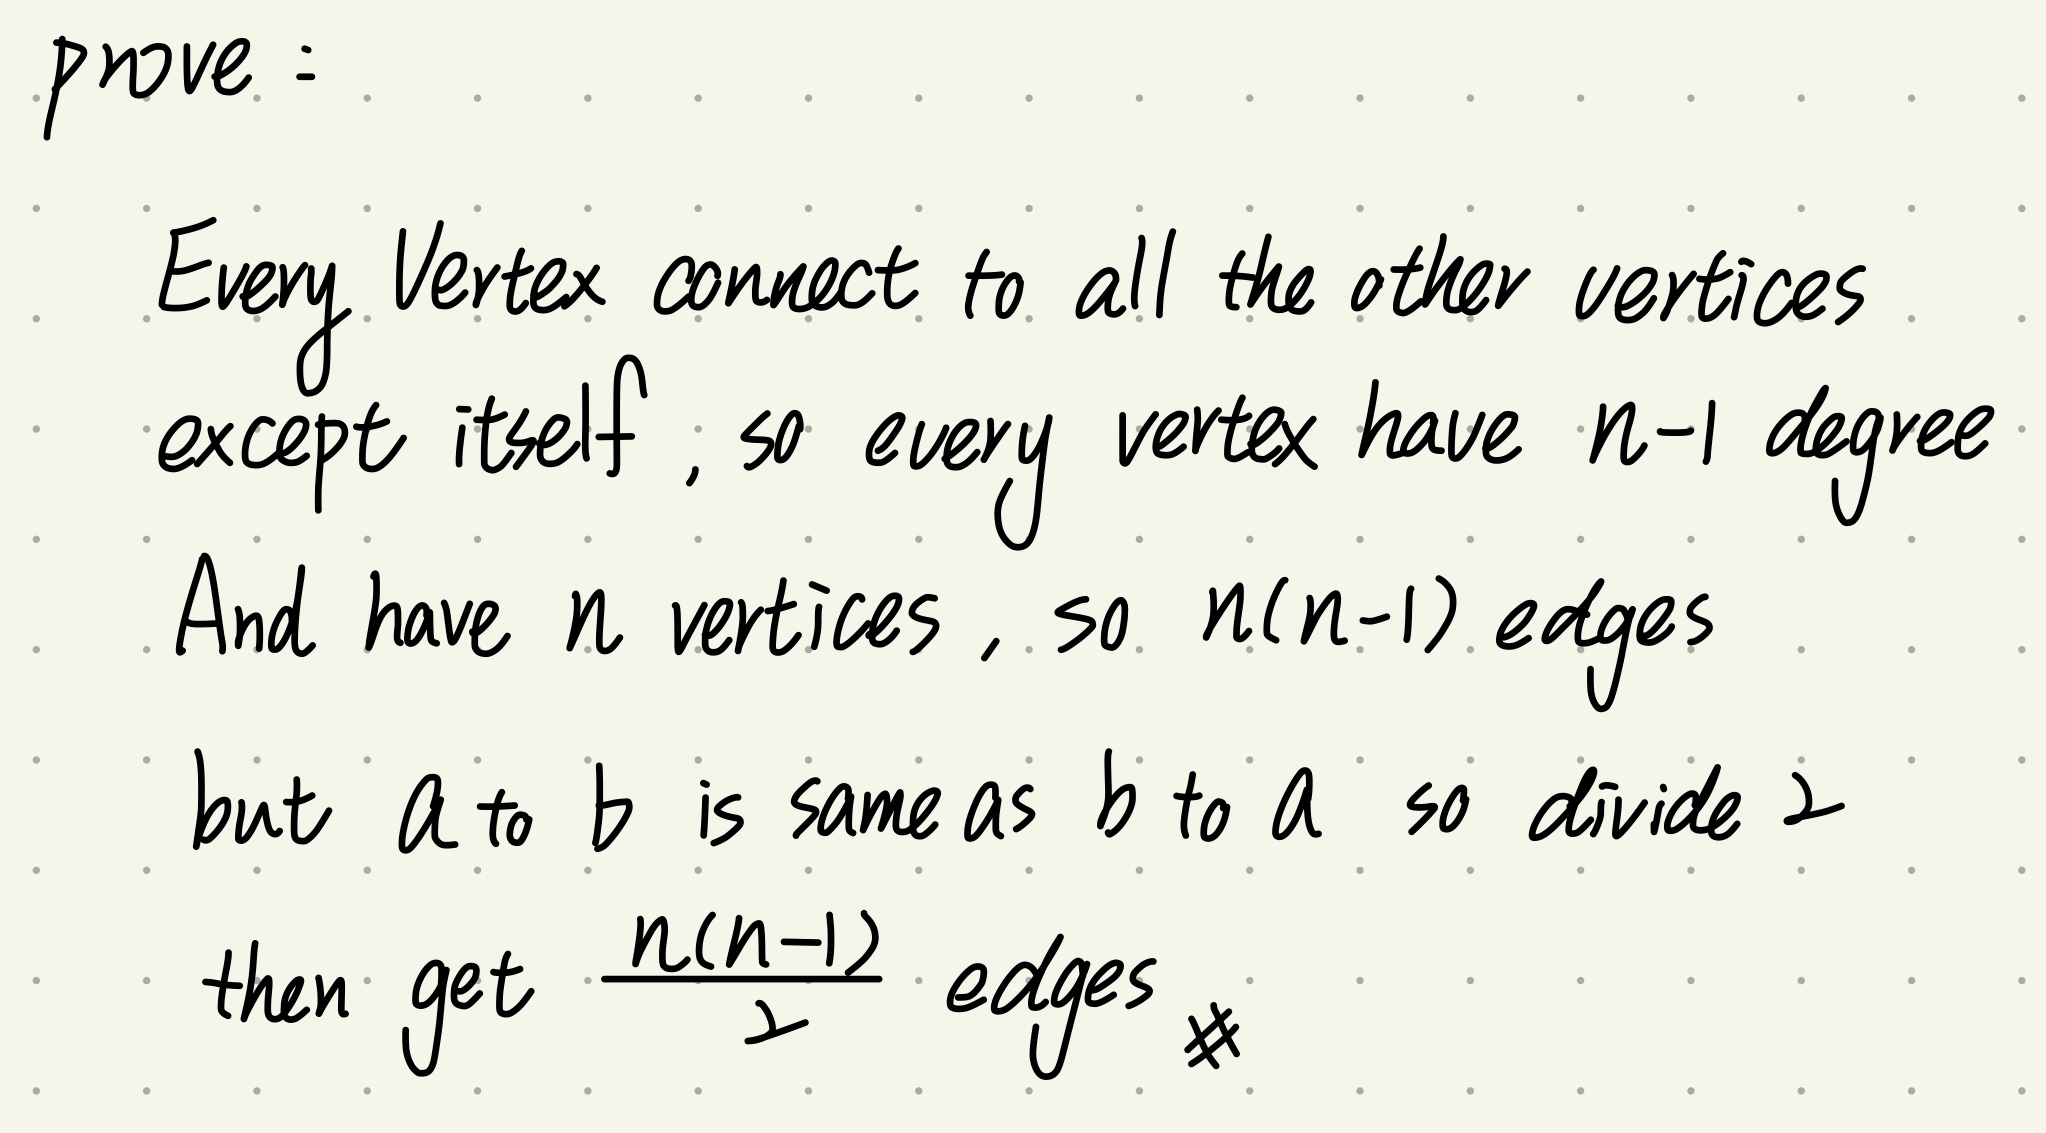 prove :
Every Vertex connect to all the other vertices
except itself, so every vertex have n-1 degree
And have n vertices, so n(n-1) edges
but a to b is same as b to a so divide 2
then get n(n-1)/2 edges #